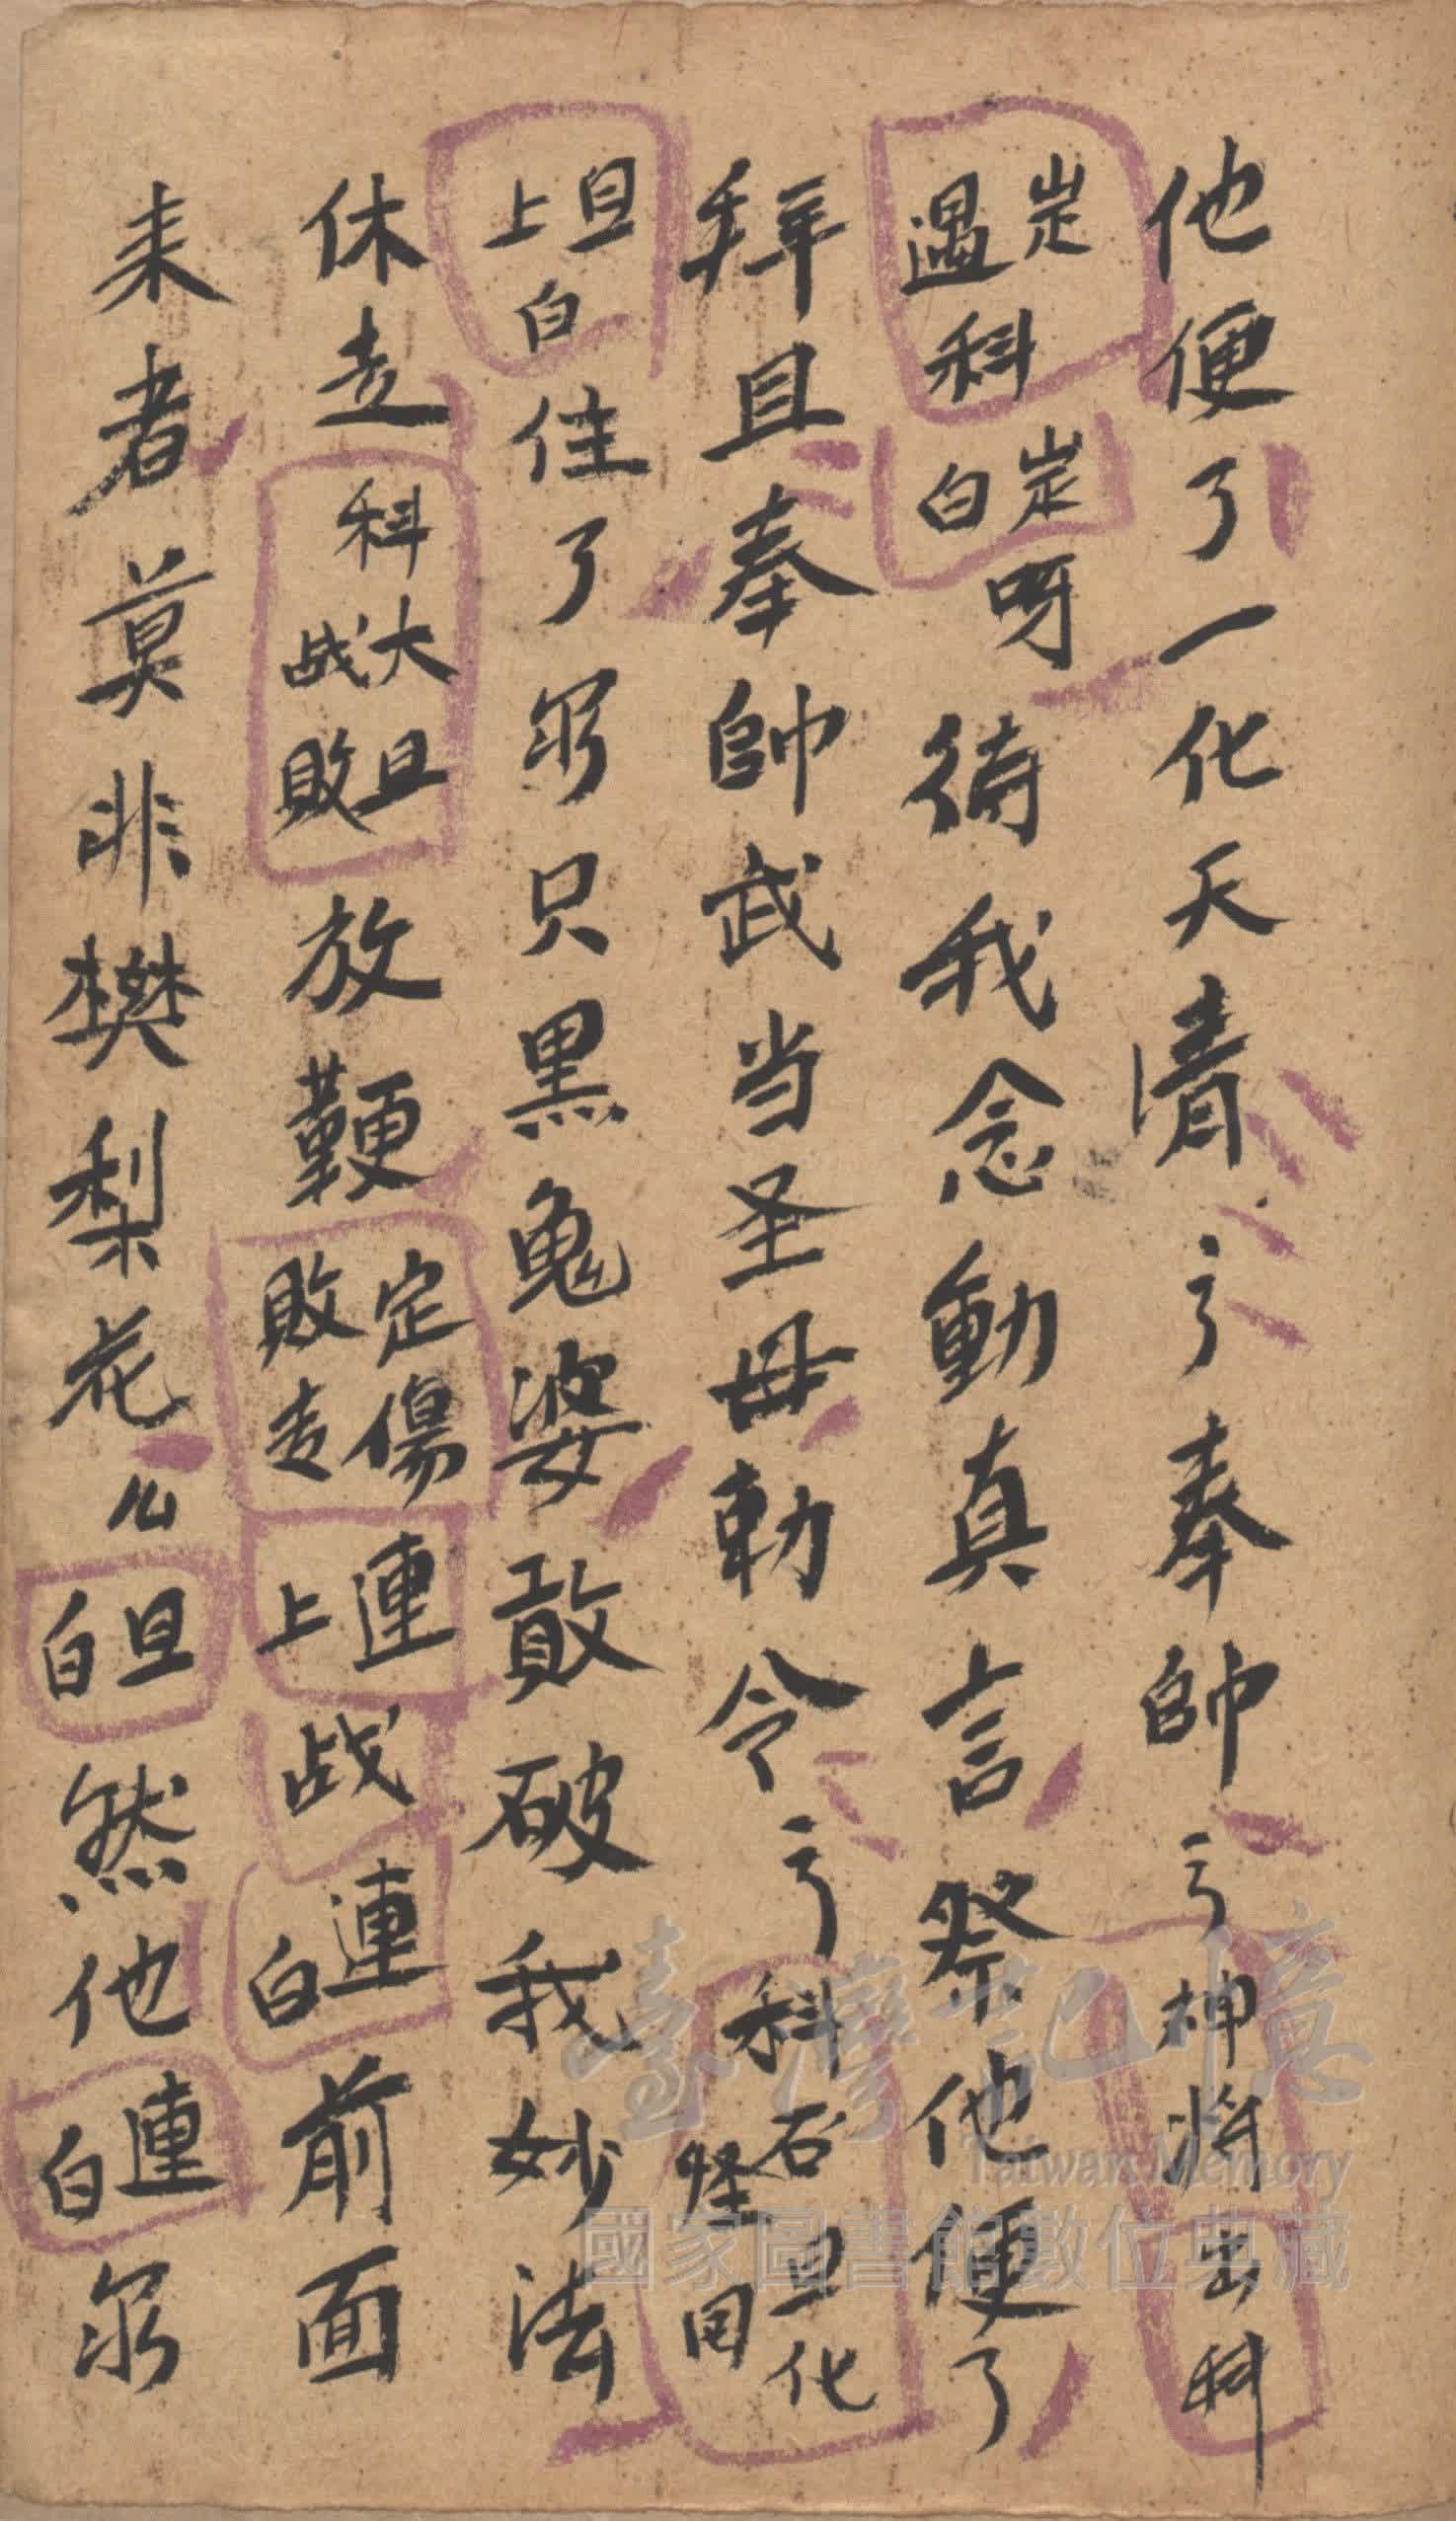 他便了一化天清〻奉帥〻神將出科
定遇科定白呀待我念動真言祭他便了
拜且奉帥武当圣母勅令〻科石旦化怪回
旦上白住了尔只黑鬼婆敢破我妙法
休走科大旦战敗放鞭定傷敗走連上战連白前面
来者莫非樊梨花么旦白然他連白尔
臺灣記憶
Taiwan Memory
國家圖書館數位典藏